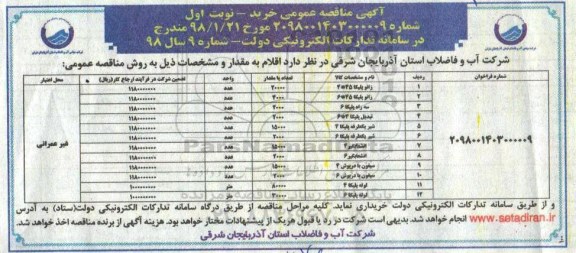 آگهی مناقصه عمومی خرید - نوبت اول
شماره ۲۰۹۸۰۰۱۴۰۳۰۰۰۰۰۹ مورخ ۹۸/۱/۲۱ مندرج
در سامانه تدارکات الکترونیکی دولت - شماره ۹ سال ۹۸
شرکت آب و فاضلاب استان آذربایجان شرقی در نظر دارد اقلام به مقدار و مشخصات ذیل به روش مناقصه عمومی:
شماره فراخوان ردیف نام و مشخصات کالا تعداد یا مقدار واحد تضمین شرکت در فرآیند ارجاع کار(ریال) محل اعتبار
۲۰۹۸۰۰۱۴۰۳۰۰۰۰۰۹ غیر عمرانی
۱ زانو پلیکا ۴۵*۴ ۲۰۰۰۰ عدد ۱۱۸۰۰۰۰۰۰۰
۲ زانو پلیکا ۴۵*۶ عدد ۱۱۸۰۰۰۰۰۰۰
۳ سه راه پلیکا ۶ عدد ۱۱۸۰۰۰۰۰۰۰
۴ تبدیل پلیکا ۴*۶ عدد ۱۱۸۰۰۰۰۰۰۰
۵ شیر یکطرفه پلیکا ۴ ۱۵۰۰۰ عدد ۱۱۸۰۰۰۰۰۰۰
۶ شیر یکطرفه پلیکا ۶ عدد ۱۱۸۰۰۰۰۰۰۰
۷ ۱۵۰۰۰ عدد ۱۱۸۰۰۰۰۰۰۰
۸ عدد ۱۱۸۰۰۰۰۰۰۰
۹ سیفون با درپوش ۴ ۱۵۰۰۰ عدد ۱۱۸۰۰۰۰۰۰۰
۱۰ سیفون با درپوش ۶ عدد ۱۱۸۰۰۰۰۰۰۰
۱۱ لوله پلیکا ۴ ۸۰۰۰۰ متر ۱۰۰۰۰۰۰۰۰۰
۱۲ لوله پلیکا ۶ متر ۱۰۰۰۰۰۰۰۰۰
و از طریق سامانه تدارکات الکترونیکی دولت خریداری نماید. کلیه مراحل مناقصه از طریق درگاه سامانه تدارکات الکترونیکی دولت(ستاد) به آدرس
www.setadiran.ir انجام خواهد شد. بدیهی است شرکت در رد یا قبول هریک از پیشنهادات مختار خواهد بود. هزینه آگهی از برنده مناقصه اخذ خواهد شد.
شرکت آب و فاضلاب استان آذربایجان شرقی